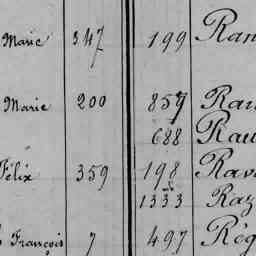 Marie 347 199 Ran
Marie 200 857 Rau
688 Rau
Félix 359 198 Rav
1333 Raz
François 7 497 Rég